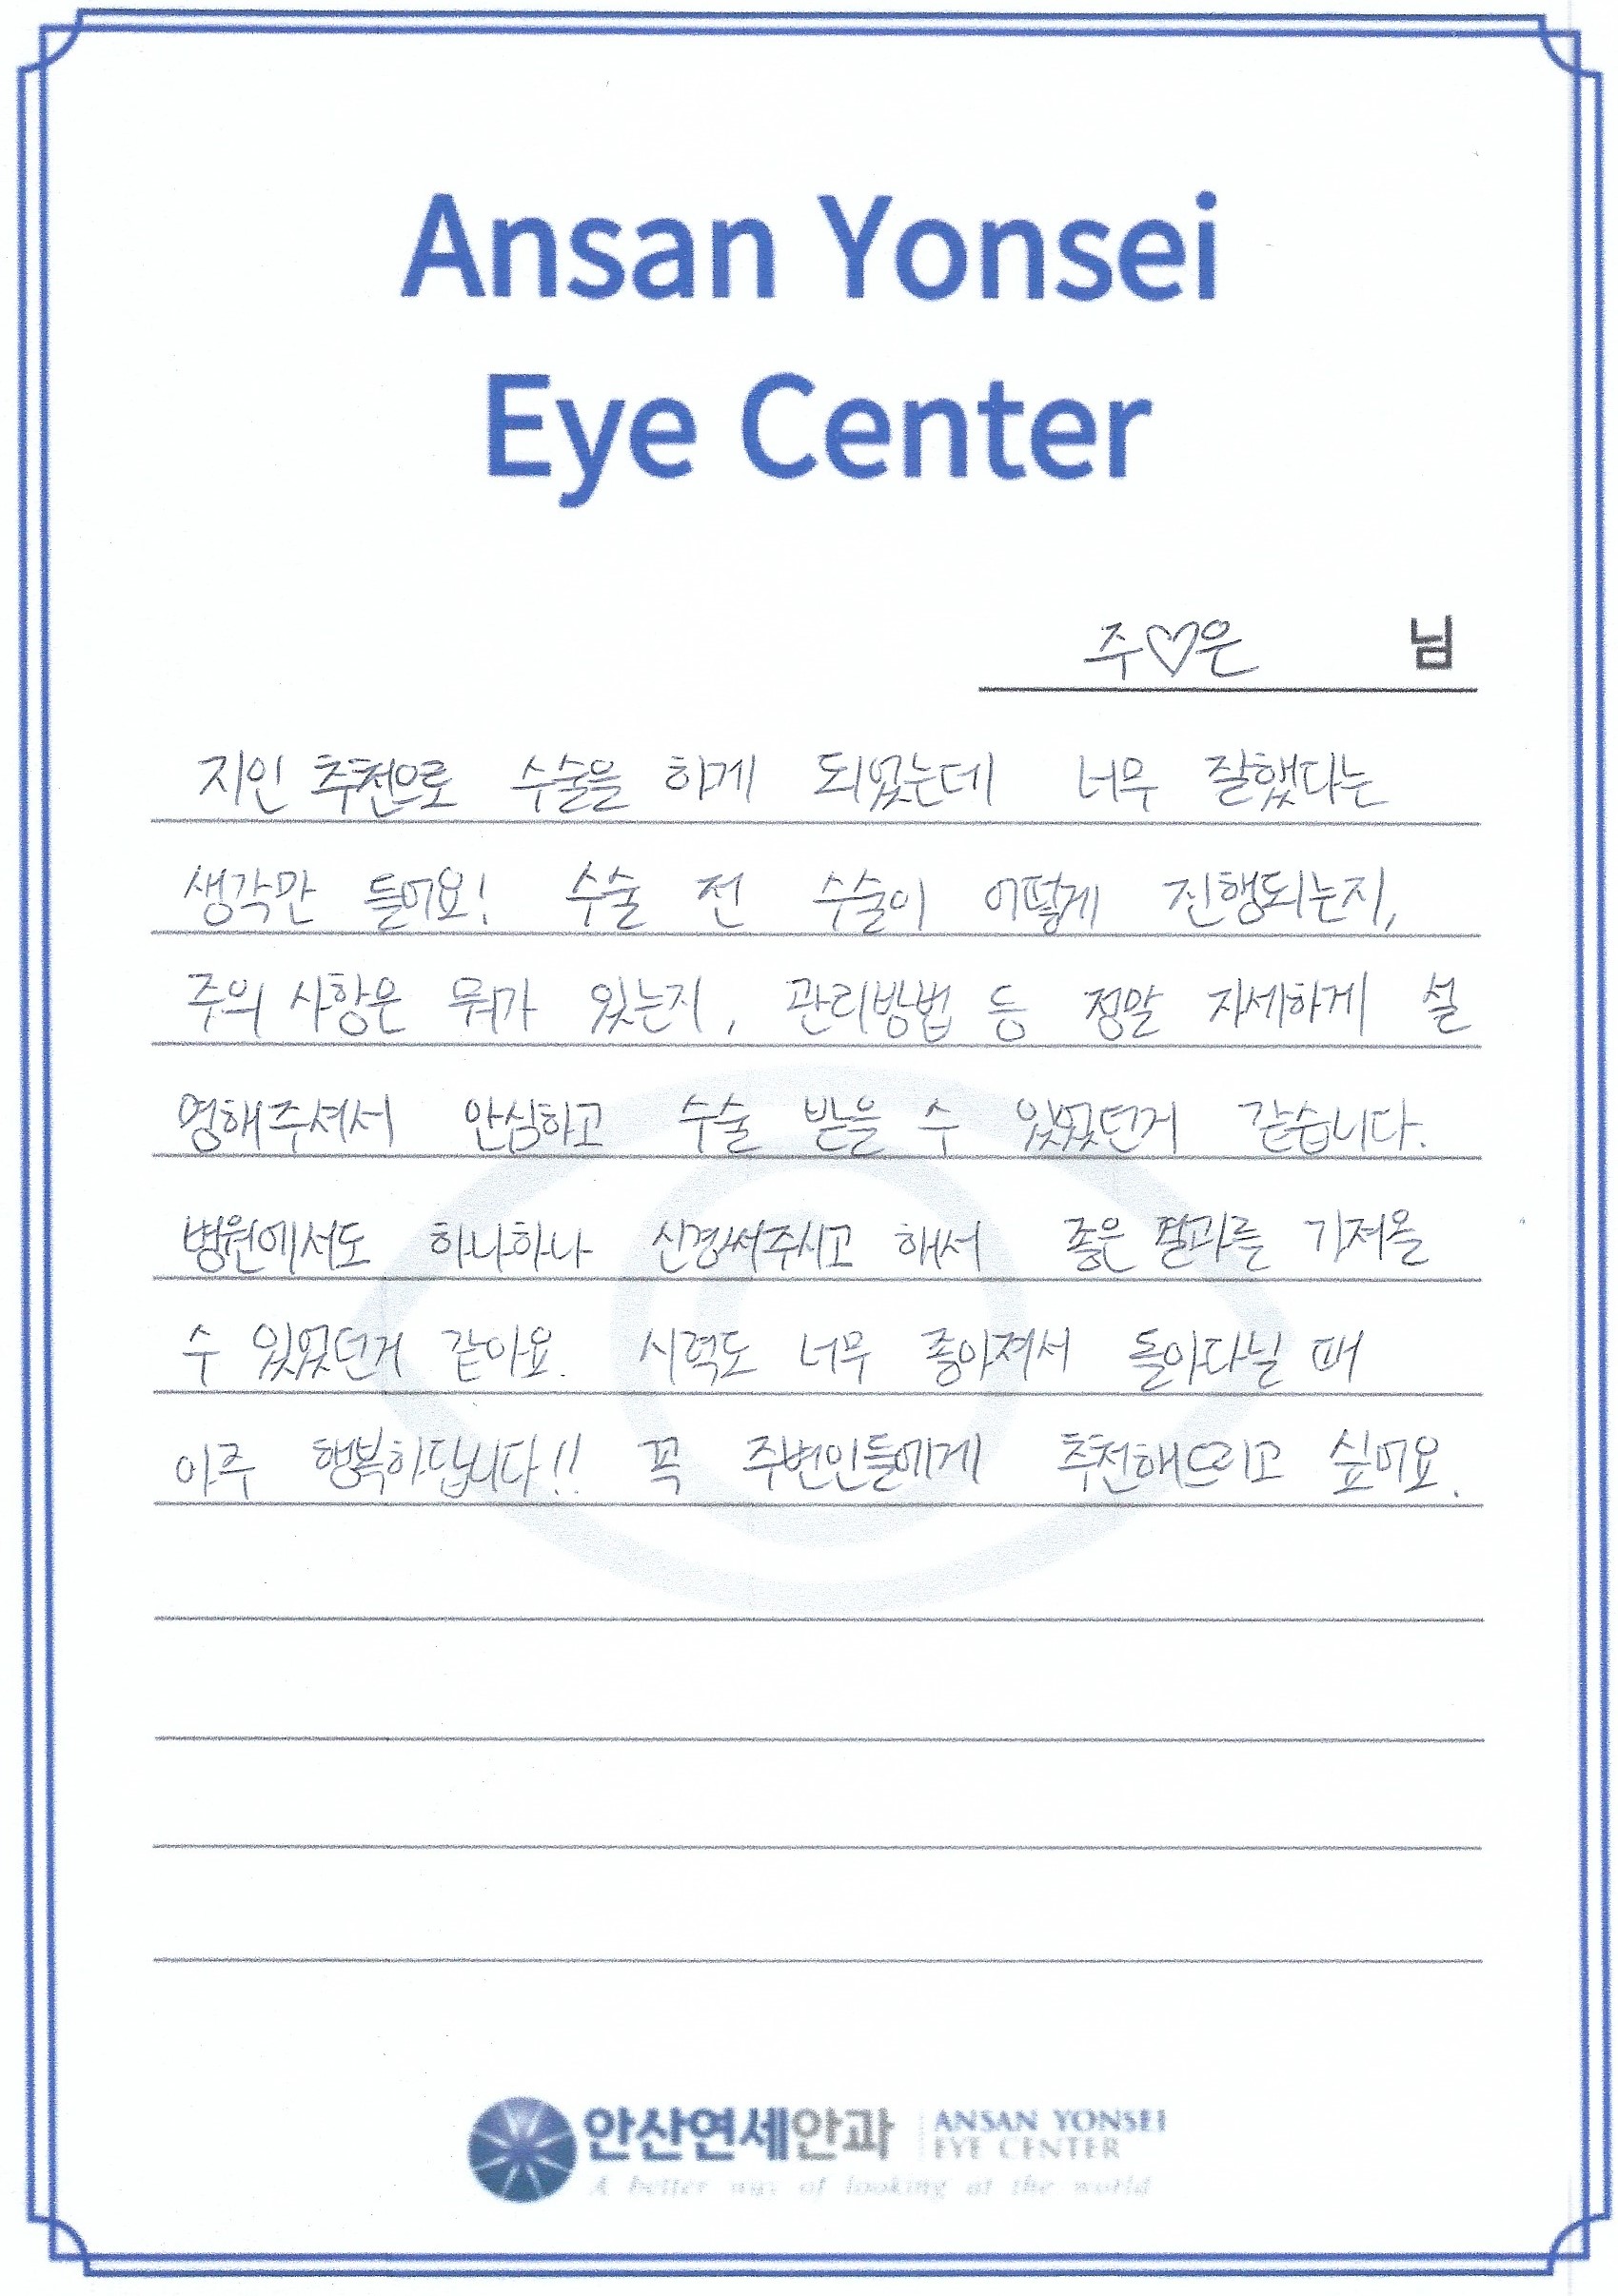 Ansan Yonsei
Eye Center
주♡은 님
지인 추천으로 수술을 하게 되었는데 너무 잘했다는
생각만 들어요! 수술 전 수술이 어떻게 진행되는지,
주의 사항은 뭐가 있는지, 관리방법 등 정말 자세하게 설
명해주셔서 안심하고 수술 받을 수 있었던거 같습니다.
병원에서도 하나하나 신경써주시고 해서 좋은 결과를 가져올
수 있었던거 같아요. 시력도 너무 좋아져서 돌아다닐 때
아주 행복하답니다!! 꼭 주변인들에게 추천해드리고 싶어요.
안산연세안과 ANSAN YONSEI
EYE CENTER
A better way of looking at the world